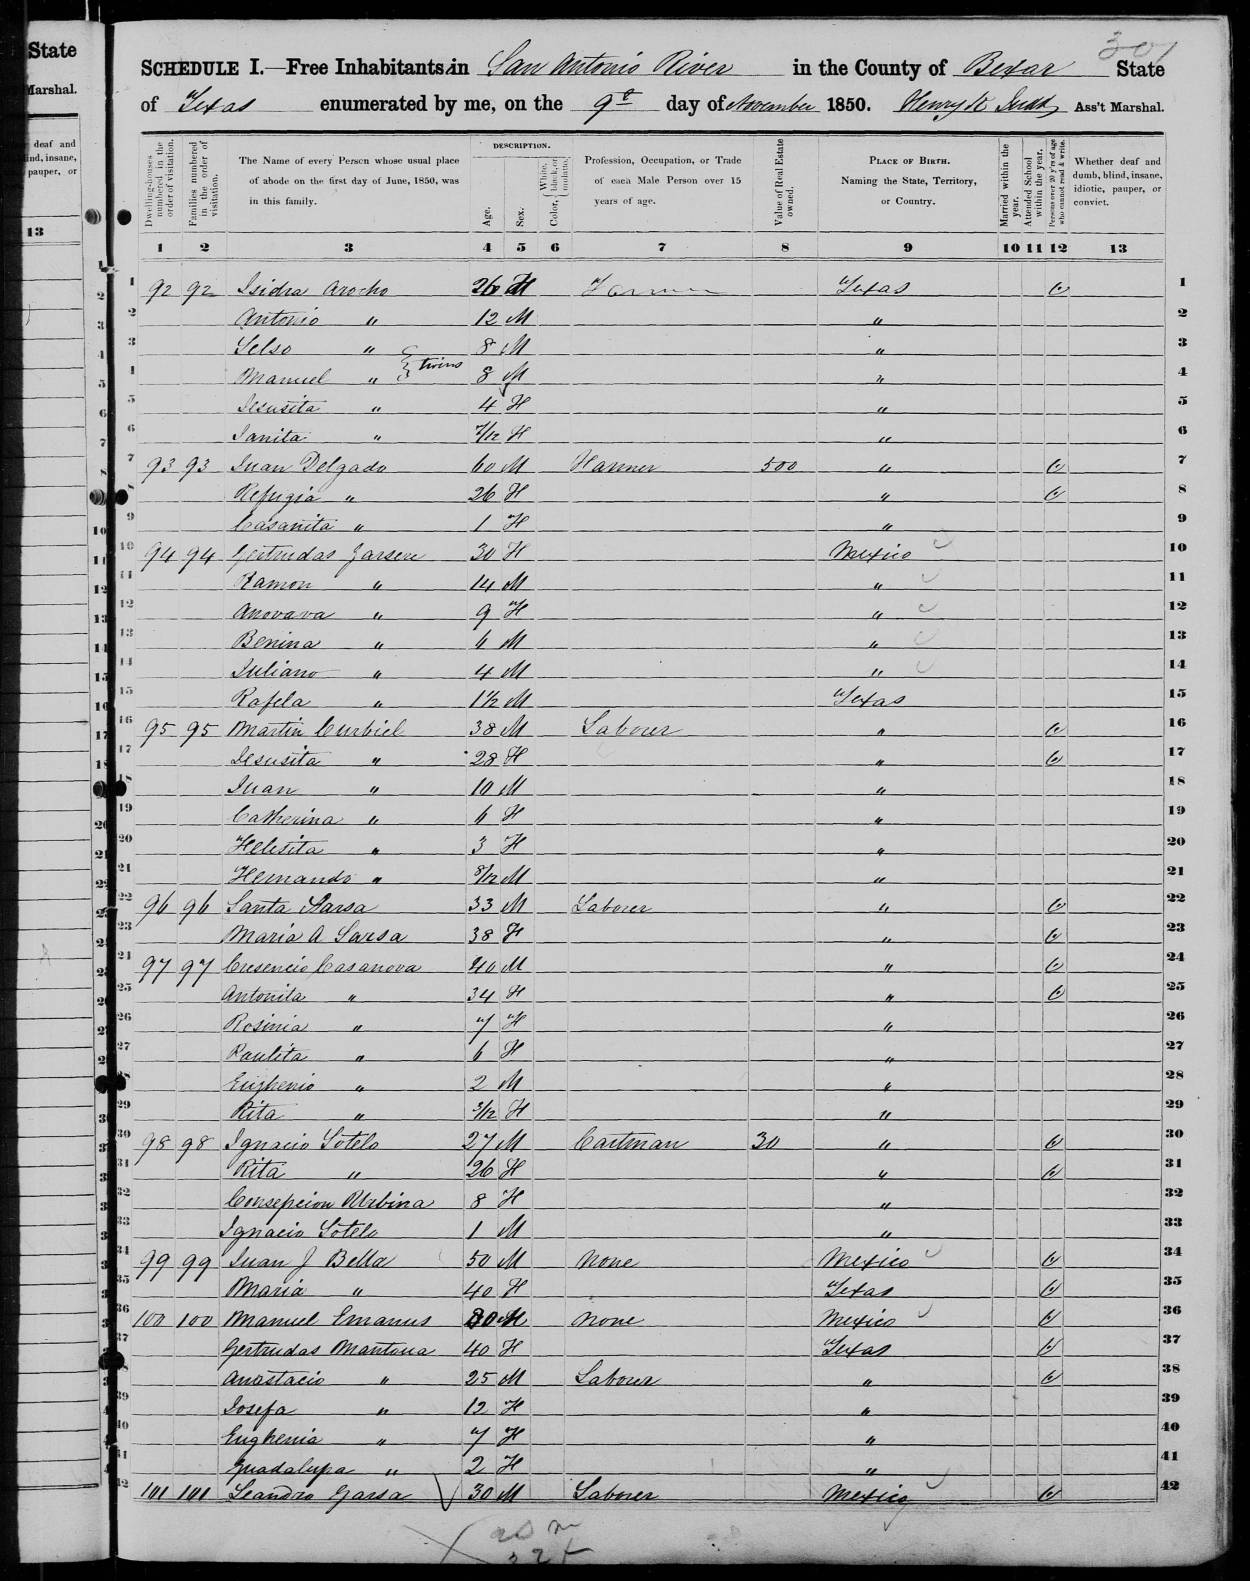 State
Marshal.
deaf and
blind, insane,
pauper, or
13
301
SCHEDULE I.—Free Inhabitants in San Antonio River in the County of Bexar State
of Texas enumerated by me, on the 9th day of November 1850. Henry K Judd Ass't Marshal.
Dwelling-houses numbered in the order of visitation.
Families numbered in the order of visitation.
The Name of every Person whose usual place of abode on the first day of June, 1850, was in this family.
DESCRIPTION.
Age.
Sex.
Color, { White, black, or mulatto.
Profession, Occupation, or Trade of each Male Person over 15 years of age.
Value of Real Estate owned.
PLACE OF BIRTH. Naming the State, Territory, or Country.
Married within the year.
Attended School within the year.
Persons over 20 y'rs of age who cannot read & write.
Whether deaf and dumb, blind, insane, idiotic, pauper, or convict.
1 2 3 4 5 6 7 8 9 10 11 12 13
1 92 92 Isidra Arocho 26 Texas 1
2 Antonio " 12 M " 2
3 Selso " 8 M " 3
4 Manuel " } twins 8 M " 4
5 Jesusita " 4 F " 5
6 Janita " 7/12 F " 6
7 93 93 Juan Delgado 60 M Farmer 500 " 7
8 Refugia " 26 F " 8
9 Casanita " 1 F " 9
10 94 94 Gertrudas 30 F Mexico 10
11 Ramon " 14 M " 11
12 Anovava " 9 F " 12
13 Benina " 6 M " 13
14 Juliano " 4 M " 14
15 Rafela " 1 1/2 M Texas 15
16 95 95 Martin Curbiel 38 M Laborer " 16
17 Jesusita " 28 F " 17
18 Juan " 10 M " 18
19 Catherina " 6 F " 19
20 Felisita " 3 F " 20
21 Fernando " 8/12 M " 21
22 96 96 Santa Sarsa 33 M Laborer " 22
23 Maria A Sarsa 38 F " 23
24 97 97 Cresencio Casanova 40 M " 24
25 Antonita " 34 F " 25
26 Rosinia " 7 F " 26
27 Paulita " 6 F " 27
28 Eughenio " 2 M " 28
29 Rita " 3/12 F " 29
30 98 98 Ignacio Sotelo 27 M Cartman 30 " 30
31 Rita " 26 F " 31
32 Consepcion Urbina 8 F " 32
33 Ignacio Sotelo 1 M " 33
34 99 99 Juan J Bella 50 M None Mexico 34
35 Maria " 40 F Texas 35
36 100 100 Manuel Emanus 80 M None Mexico 36
37 Gertrudas Mantoua 40 F Texas 37
38 Anastacio " 25 M Laborer " 38
39 Josefa " 12 F " 39
40 Eughenia " 7 F " 40
41 Guadalupa " 2 F " 41
42 101 101 Leandro Garsa 30 M Laborer Mexico 42